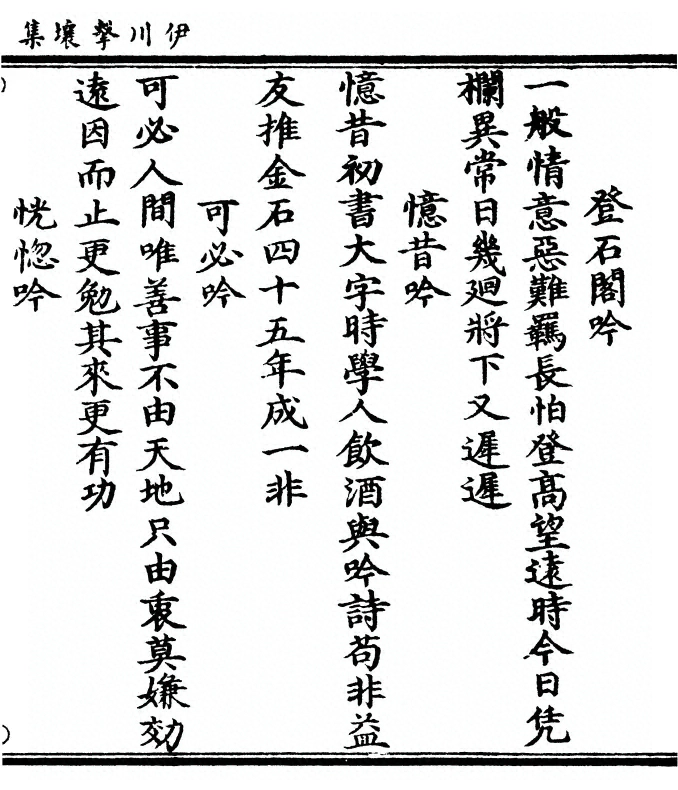 伊川擊壤集
登石閣吟
一般情意惡難羈長怕登高望遠時今日凭
欄異常日幾廻將下又遲遲
憶昔吟
憶昔初書大字時學人飲酒與吟詩苟非益
友推金石四十五年成一非
可必吟
可必人間唯善事不由天地只由衷莫嫌効
遠因而止更勉其來更有功
恍惚吟